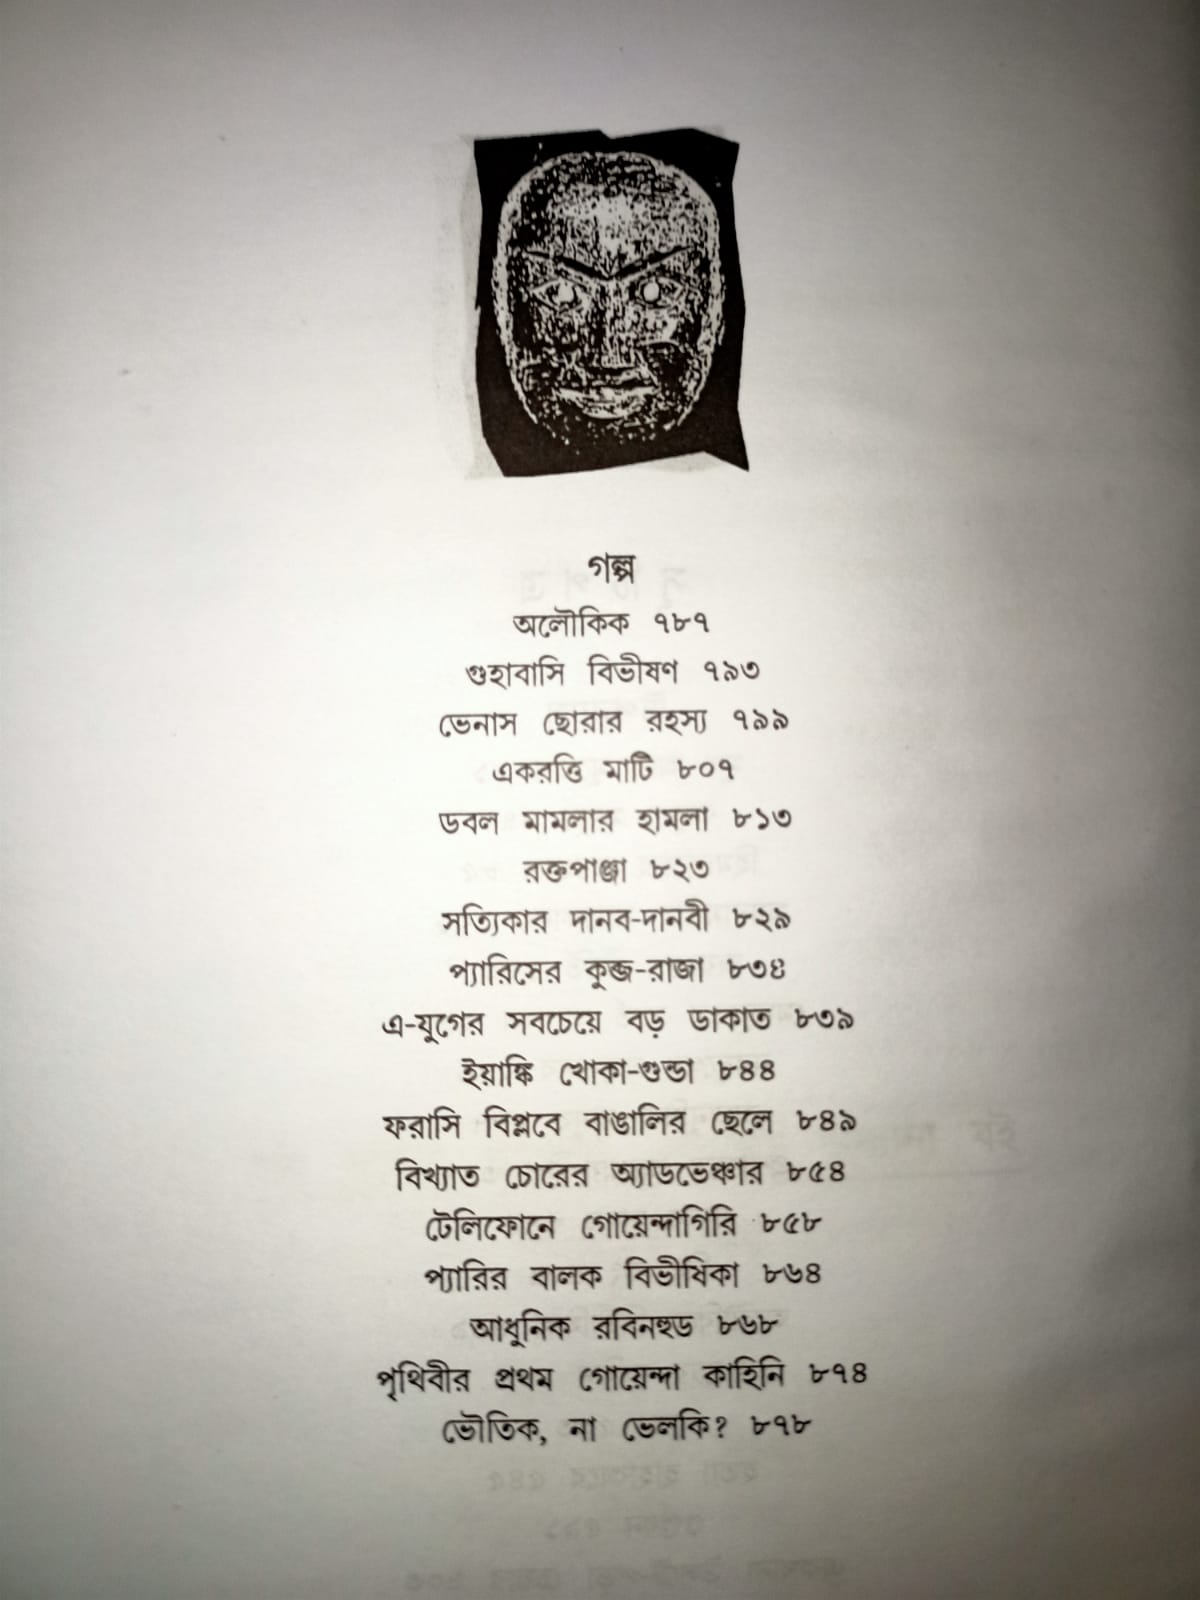 গল্প
অলৌকিক ৭৮৭
গুহাবাসি বিভীষণ ৭৯৩
ভেনাস ছোরার রহস্য ৭৯৯
একরত্তি মাটি ৮০৭
ডবল মামলার হামলা ৮১৩
রক্তপাঞ্জা ৮২৩
সত্যিকার দানব-দানবী ৮২৯
প্যারিসের কুব্জ-রাজা ৮৩৪
এ-যুগের সবচেয়ে বড় ডাকাত ৮৩৯
ইয়াঙ্কি খোকা-গুন্ডা ৮৪৪
ফরাসি বিপ্লবে বাঙালির ছেলে ৮৪৯
বিখ্যাত চোরের অ্যাডভেঞ্চার ৮৫৪
টেলিফোনে গোয়েন্দাগিরি ৮৫৮
প্যারির বালক বিভীষিকা ৮৬৪
আধুনিক রবিনহুড ৮৬৮
পৃথিবীর প্রথম গোয়েন্দা কাহিনি ৮৭৪
ভৌতিক, না ভেলকি? ৮৭৮